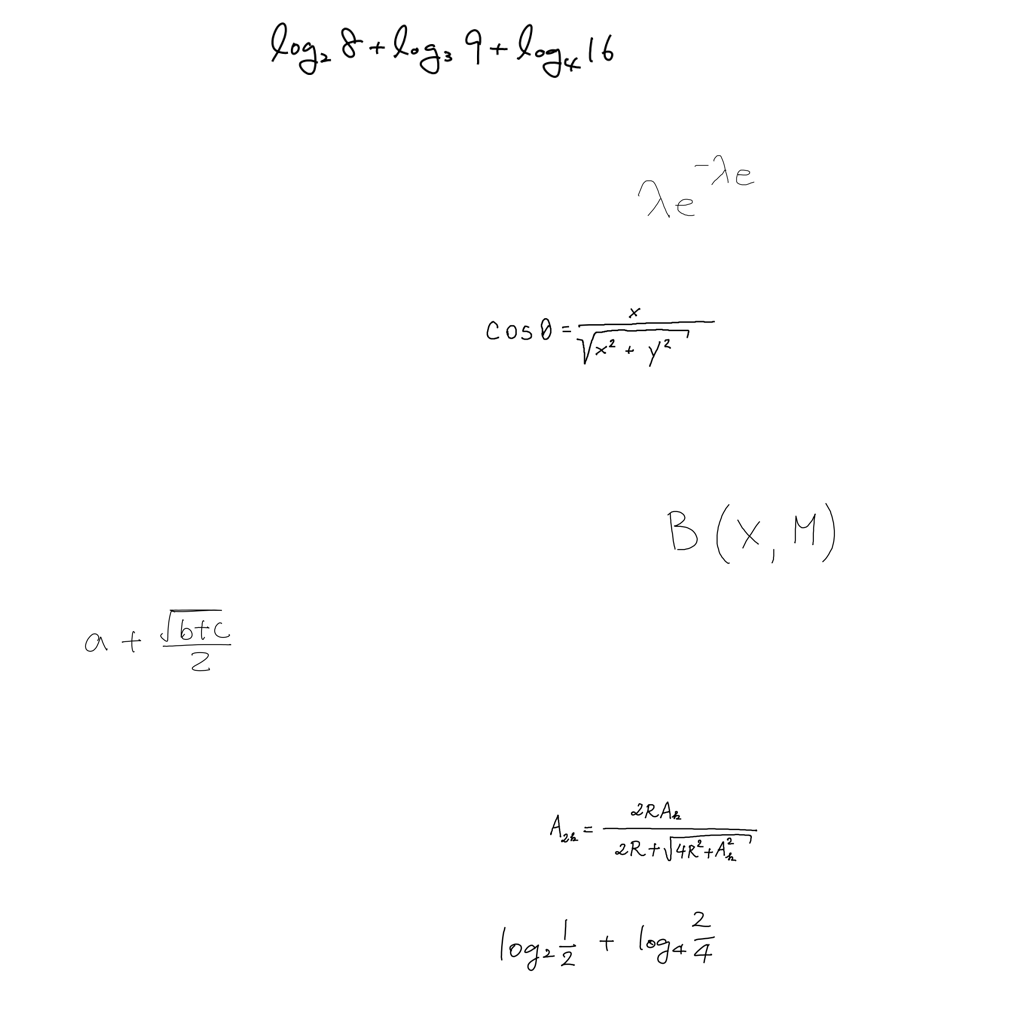 \log_2 8 + \log_3 9 + \log_4 16
\lambda e^{-\lambda e}
\cos\theta = \frac{x}{\sqrt{x^2 + y^2}}
B(X, M)
a + \frac{\sqrt{b+c}}{2}
A_{2k} = \frac{2RA_k}{2R + \sqrt{4R^2 + A_k^2}}
\log_2 \frac{1}{2} + \log_4 \frac{2}{4}